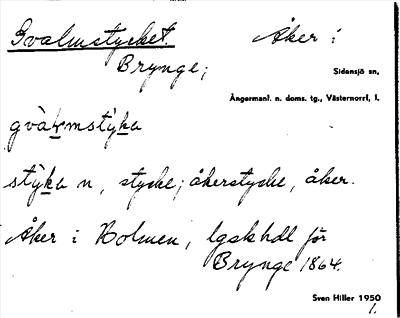 Gvalmstycket. Åker i
Brynge;
Sidensjö sn,
Ångermanl. n. doms. tg., Västernorrl, l.
gvàḷmstýḵa
stýḵa n, stycke; åkerstycke, åker.
Åker i Holmen, lgskhdl för
Brynge 1864.
Sven Hiller 1950
1.